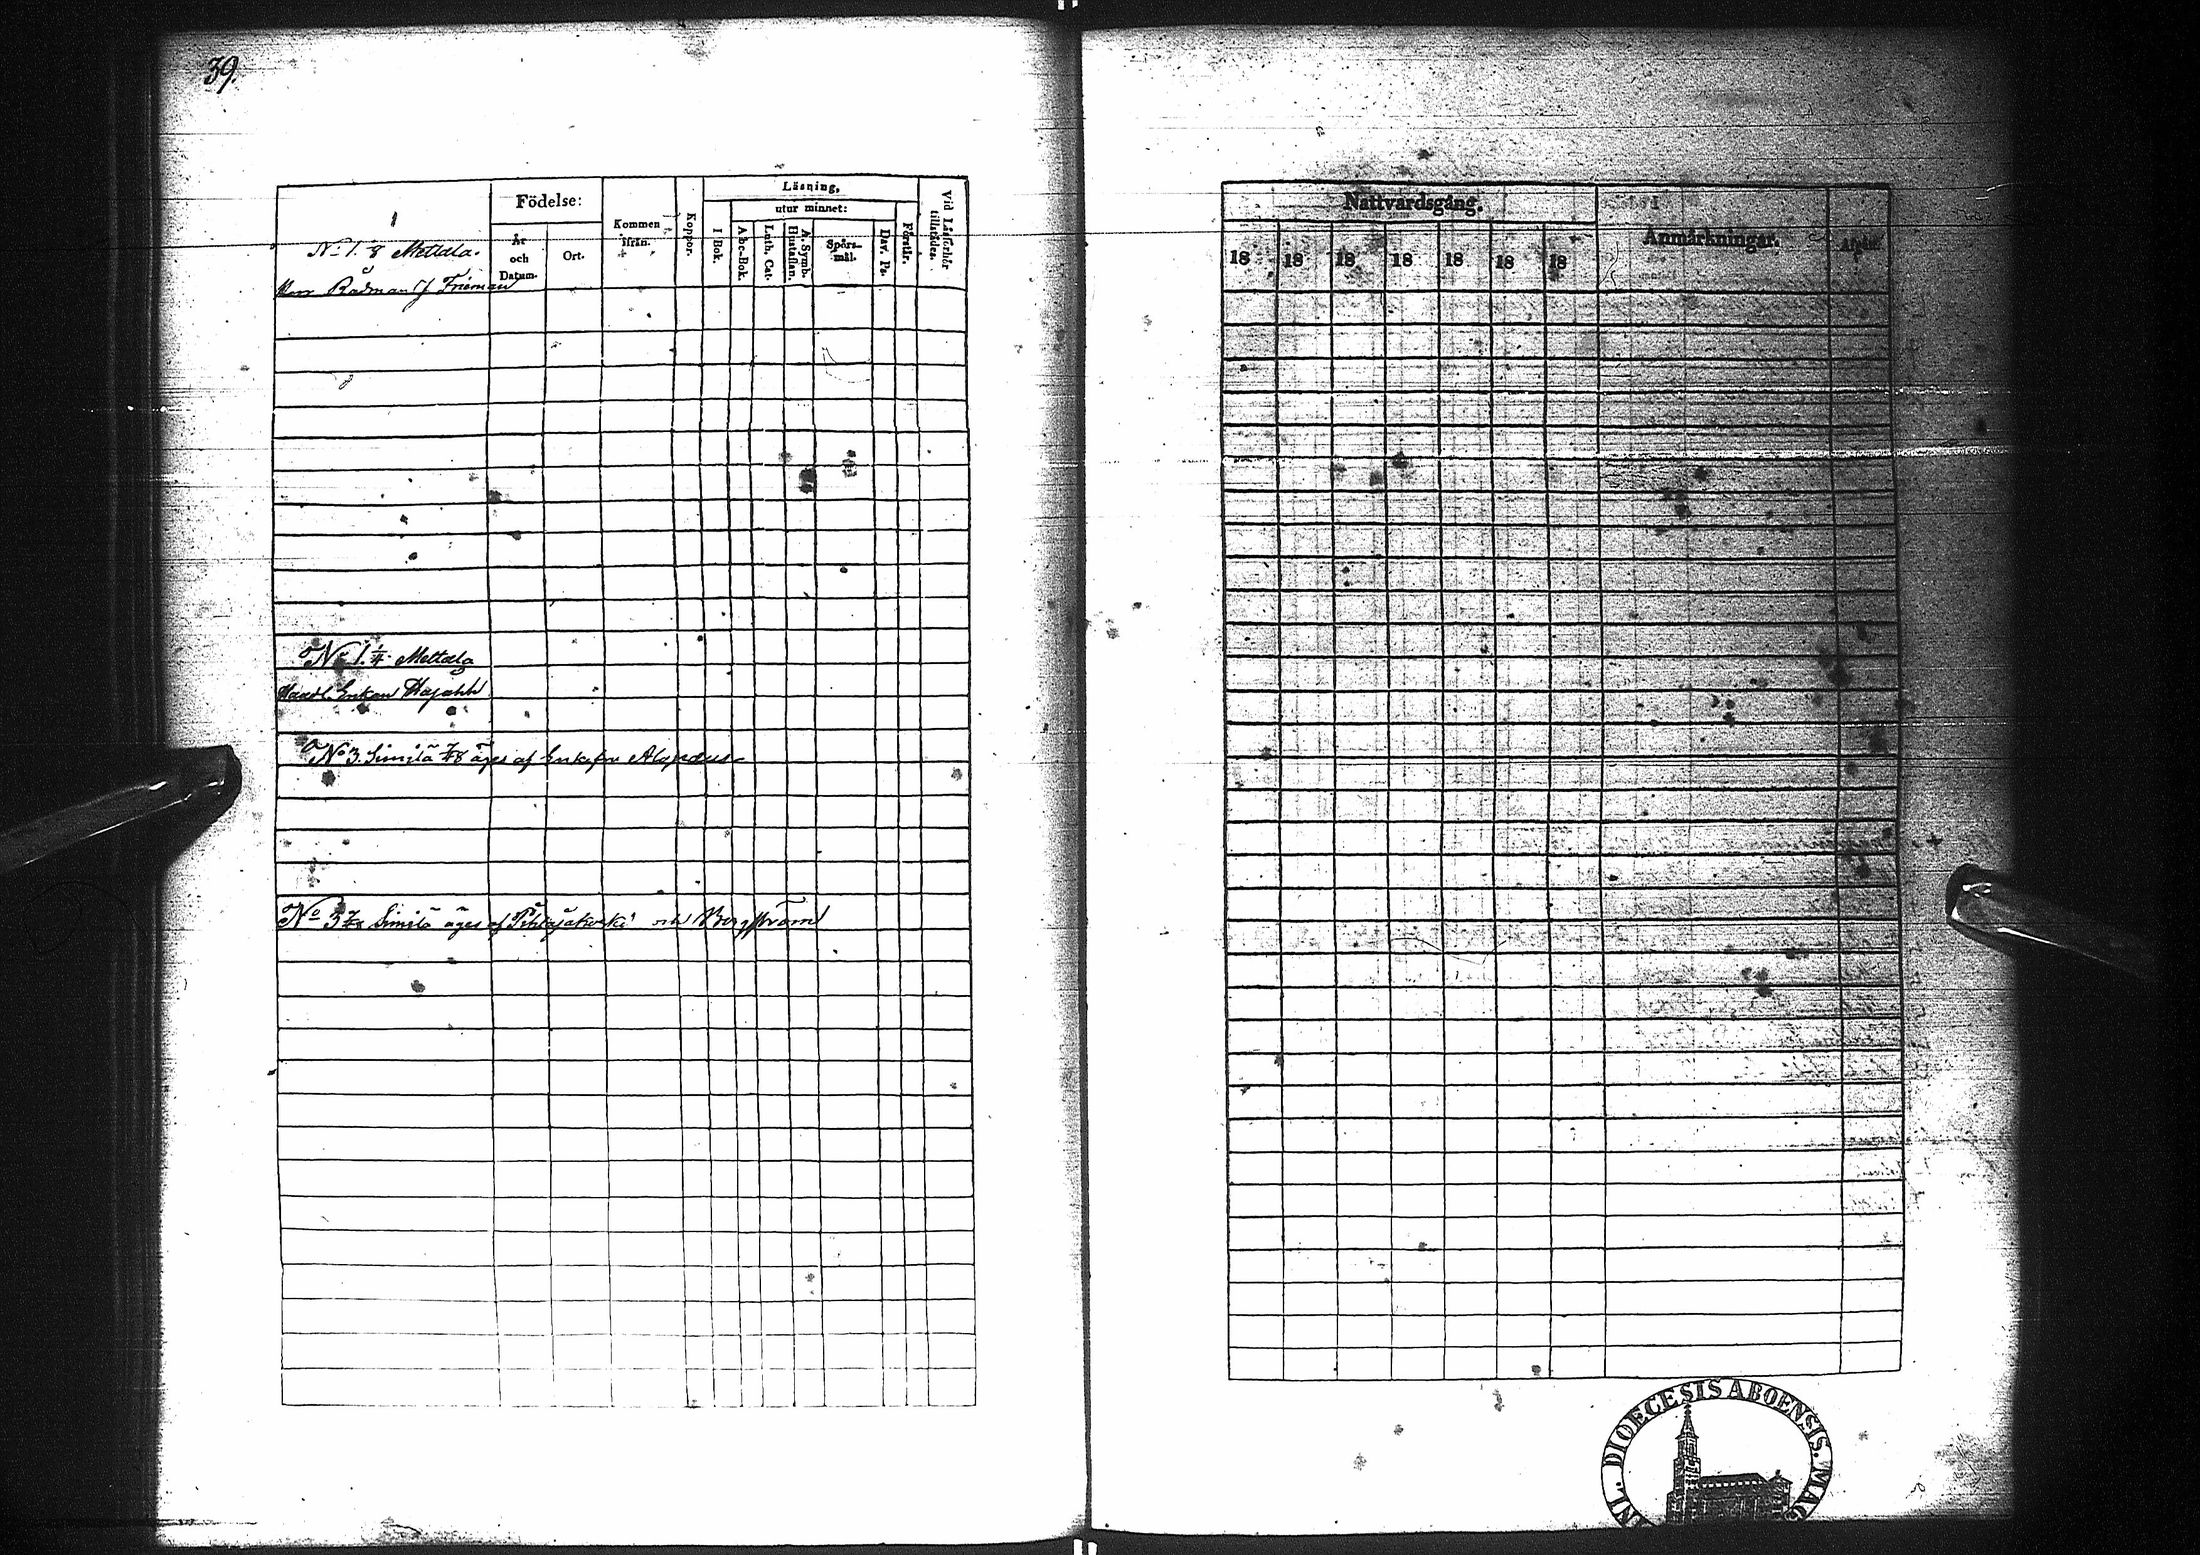 39.
Födelse:
År och Datum.
Ort.
Kommen ifrån.
Koppor.
Läsning,
utur minnet:
I Bok.
Abc-Bok.
Luth. Cat.
A. Symb. Hustaflan.
Spörs-mål.
Dav. Ps.
Förstår.
Vid Läsförhör tillstädes.
No 1. 1/8 Mettala.
Herr Rådman J Frieman
No 1. 1/4 Mettala
Handl. Enkan
No 3. Simila 7/48 äges af Enkefru Alopæus
No 3 äges af och Bergström
Nattvardsgång.
18 18 18 18 18 18 18
Anmärkningar.
DIOECESIS ABOENSIS. MAG